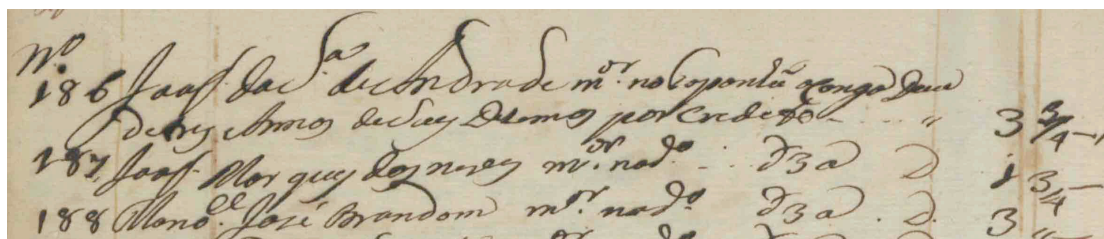 Nº
186 Joaõ da S.ª de Andrade m.ºr no Deve
de tres Annos de Seus Dizimos por Credito - - - " 3 3/4 -
187 Joaõ Marques das neves m.ºr no dº - - d 3 a D 1 3/4 -
188 Mano.el José Brandom m.ºr no dº d 3 a . D. 3 "